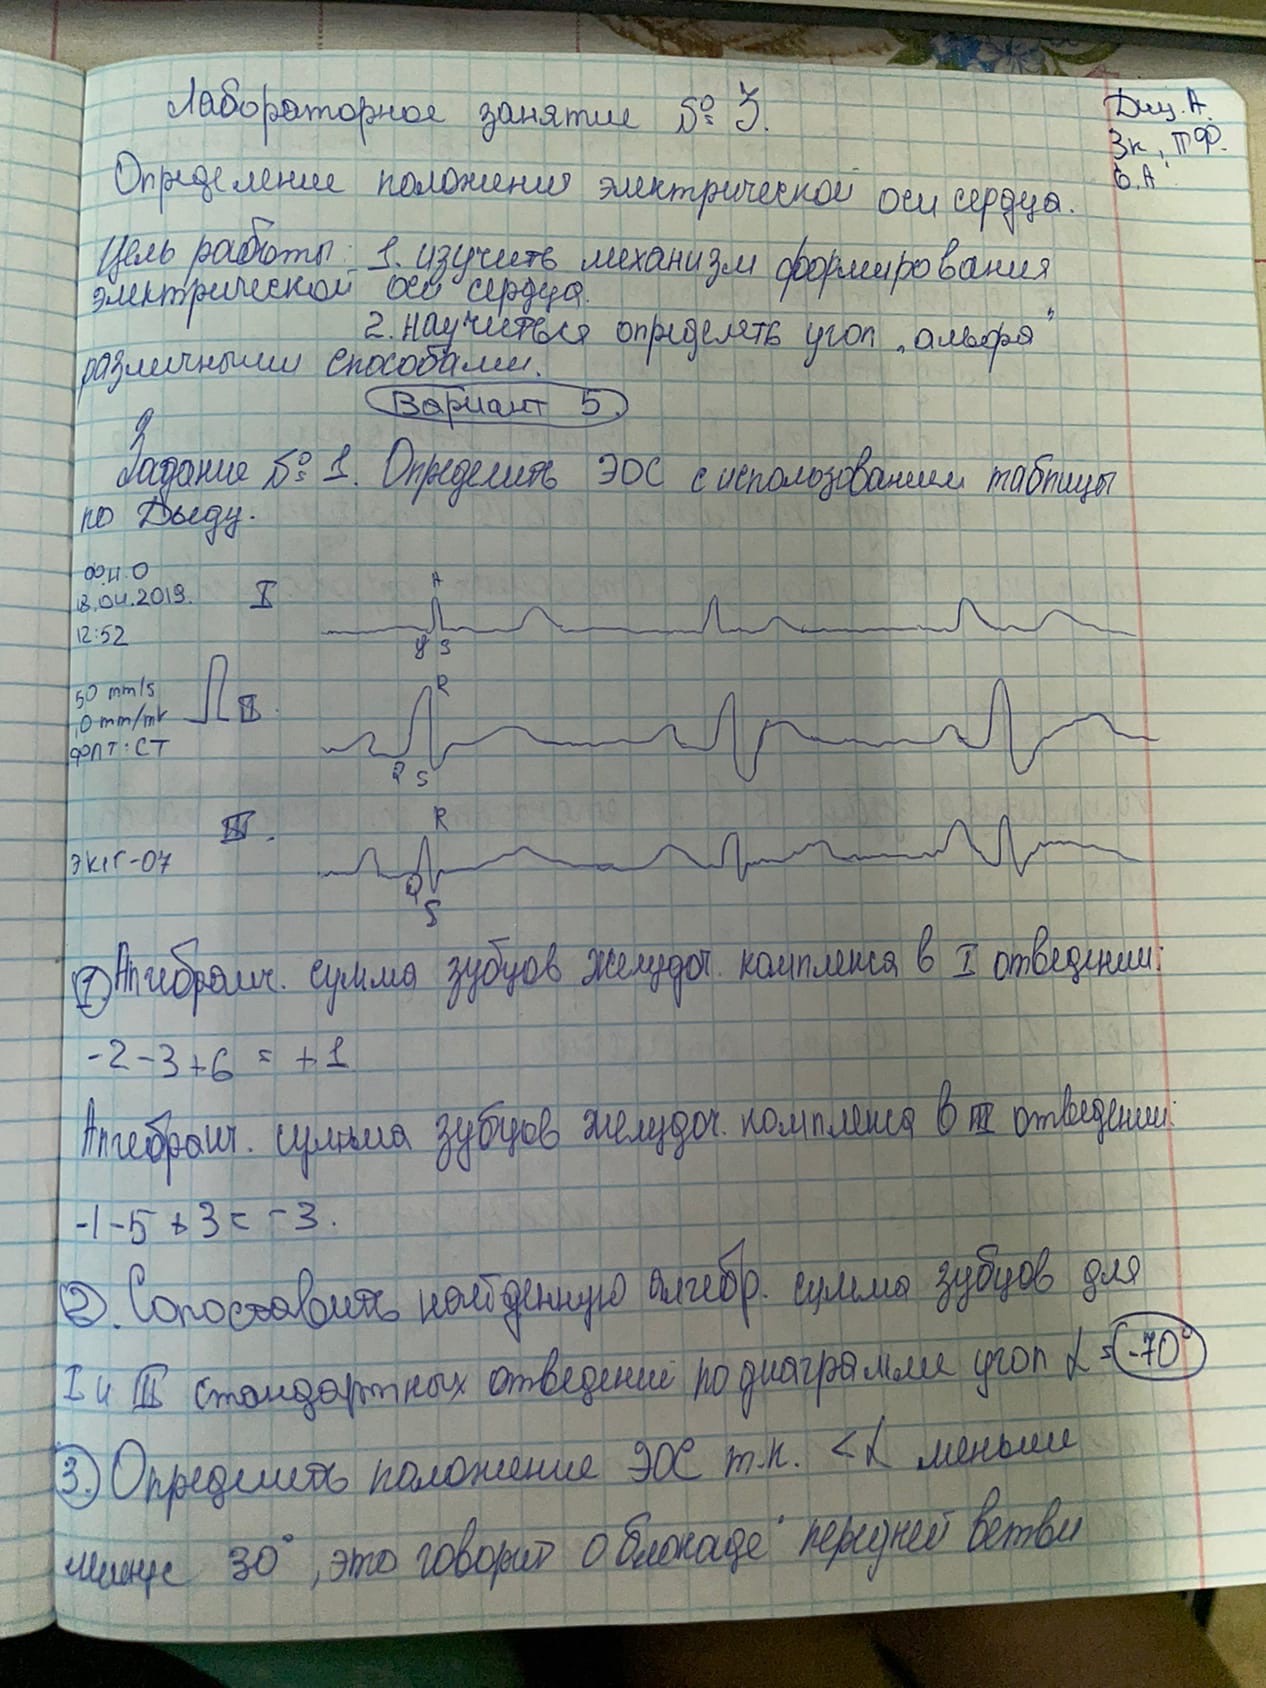 Лабораторное занятие № 3.
Диц. А.
3к, ПФ.
6.А
Определение положения электрической оси сердца.
Цель работы: 1. изучить механизм формирования
электрической оси сердца.
2. научиться определять угол „альфа"
различными способами.
Вариант 5
Задание № 1. Определить ЭОС с использованием таблицы
по Дьеду.
Ф.И.О
18.04.2019.
12:52
I
R
q S
50 mm/s
II.
R
,0 mm/mV
ФПТ: СТ
Q S
III.
R
ЭК1Г-07
Q
S
1 Алгебраич. сумма зубцов желудоч. комплекса в I отведении:
-2-3+6 = +1
Алгебраич. сумма зубцов желудоч. комплекса в III отведении:
-1-5+3=-3.
2. Сопоставить найденную алгебр. сумма зубцов для
I и III стандартных отведений по диаграмме угол α = -70°
3. Определить положение ЭОС т.к. <α меньше
минус 30°, это говорит о блокаде передней ветви